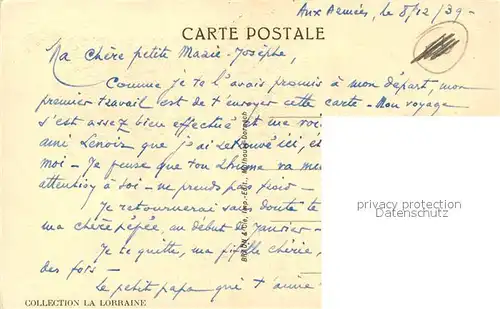 Aux Armées, le 8/12/39-
CARTE POSTALE
Ma chère petite Marie-Josèphe,
Comme je te l'avais promis à mon départ, mon
premier travail est de t'envoyer cette carte - Mon voyage
s'est assez bien effectué et me voi
ami Lenoir que j'ai retrouvé ici, é
moi - Je pense que ton rhume va me
attention à toi - ne prends pas froid -
Je retournerai sans doute te
ma chère pépée, au début de Janvier -
Je te quitte, ma fifille chérie,
des fois -
Le petit papa qui t'aime
BRAUN & Cie, Imp.-Edit., Mulhouse-Dornach
privacy protection
Datenschutz
COLLECTION LA LORRAINE